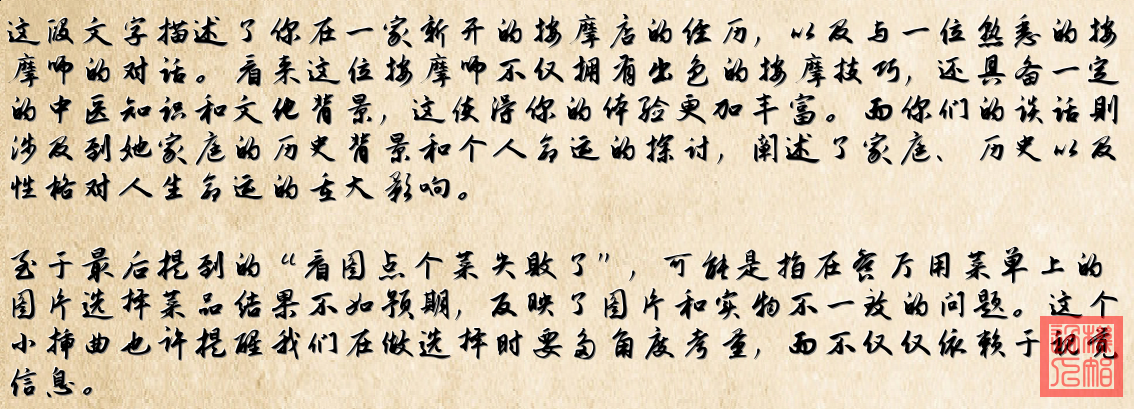 这段文字描述了你在一家新开的按摩店的经历，以及与一位熟悉的按
摩师的对话。看来这位按摩师不仅拥有出色的按摩技巧，还具备一定
的中医知识和文化背景，这使得你的体验更加丰富。而你们的谈话则
涉及到她家庭的历史背景和个人命运的探讨，阐述了家庭、历史以及
性格对人生命运的重大影响。
至于最后提到的“看图点个菜失败了”，可能是指在餐厅用菜单上的
图片选择菜品结果不如预期，反映了图片和实物不一致的问题。这个
小插曲也许提醒我们在做选择时要多角度考量，而不仅仅依赖于视觉
信息。